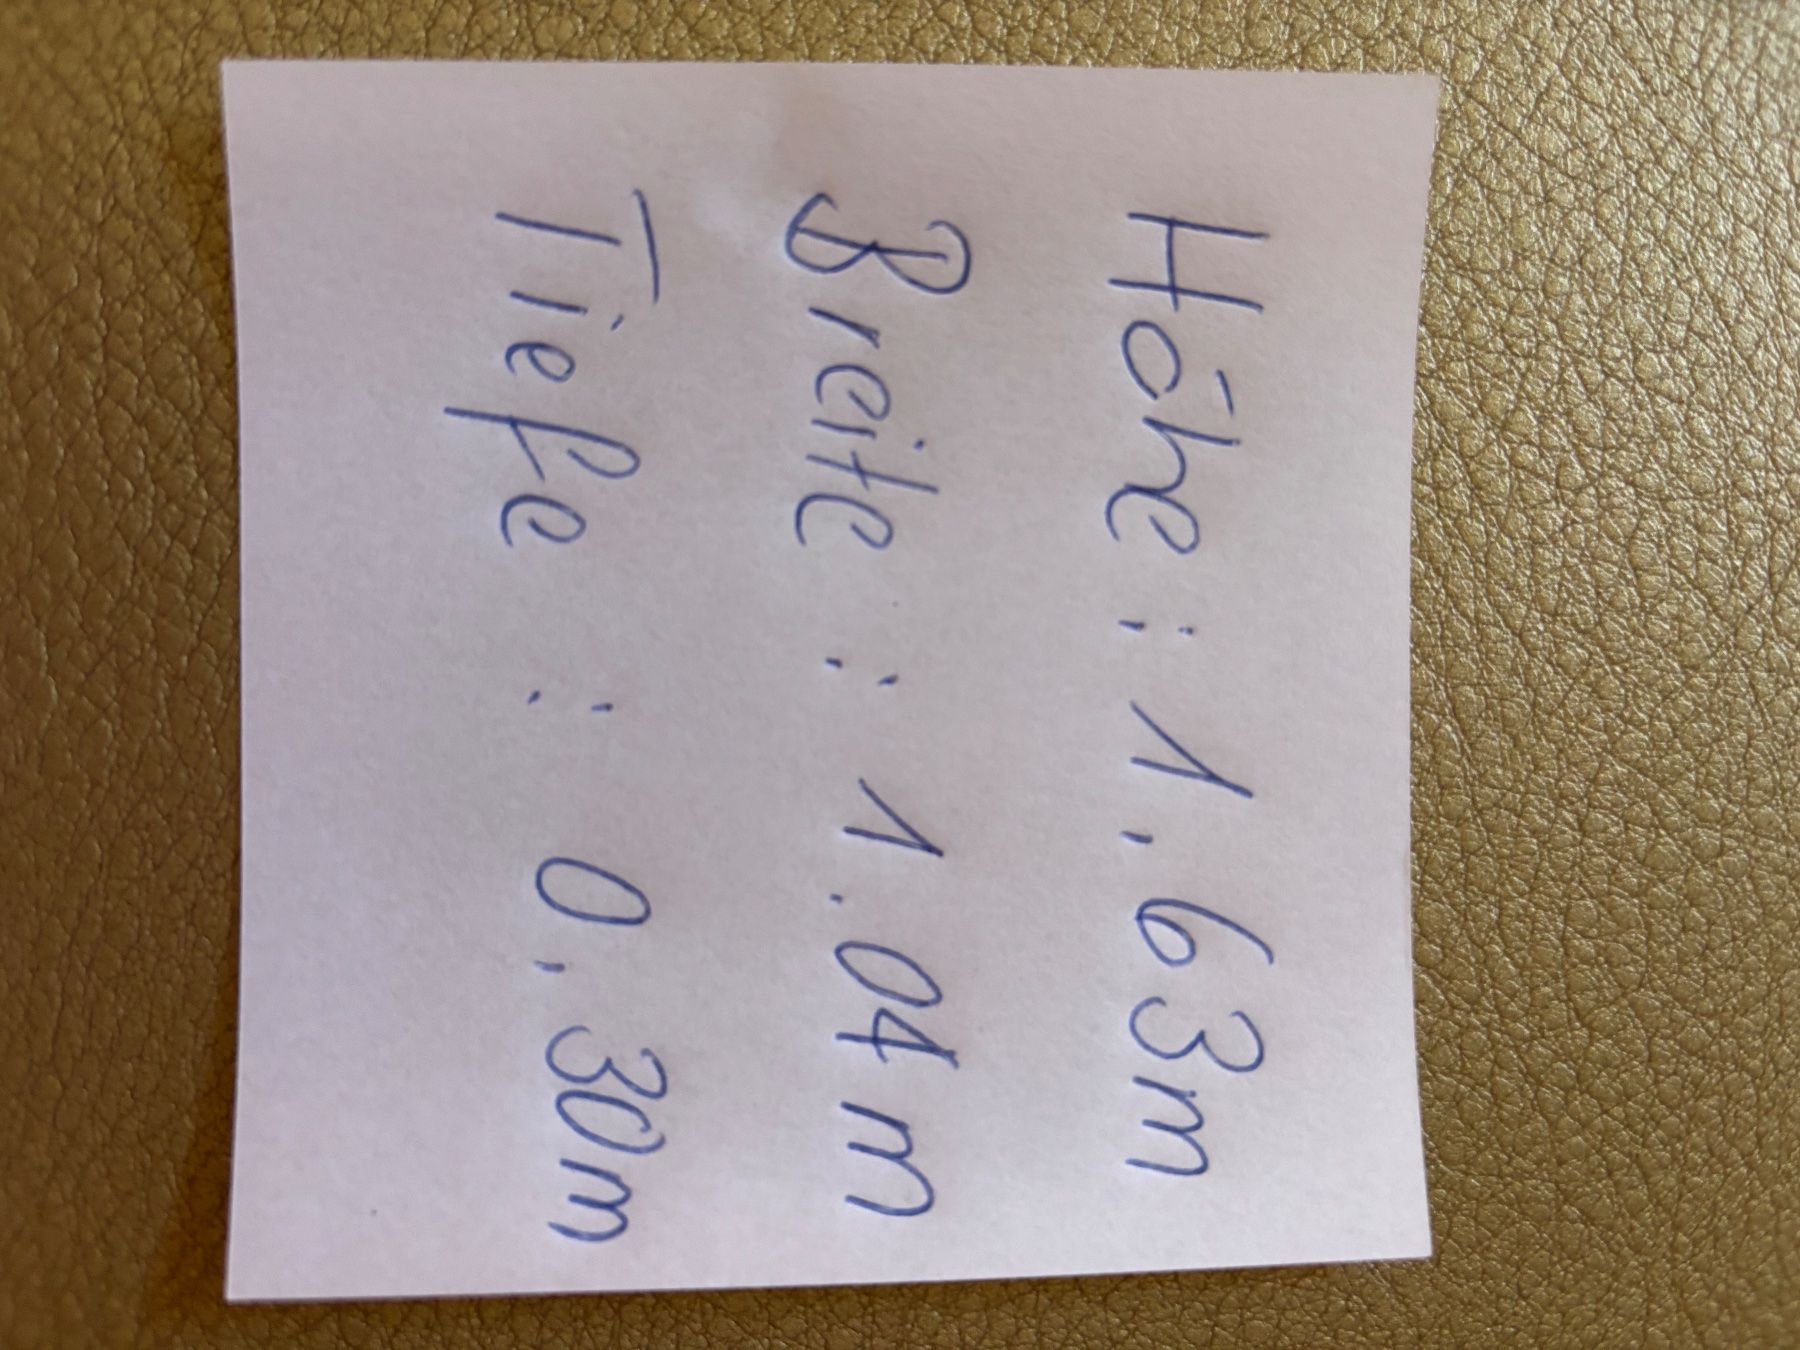 Höhe : 1.63m
Breite : 1.04m
Tiefe : 0.30m